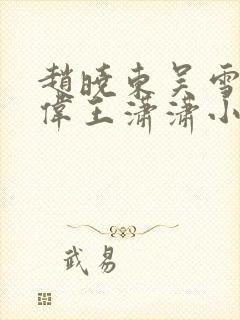 趙曉東吴雪
偉王瀟瀟小
武易